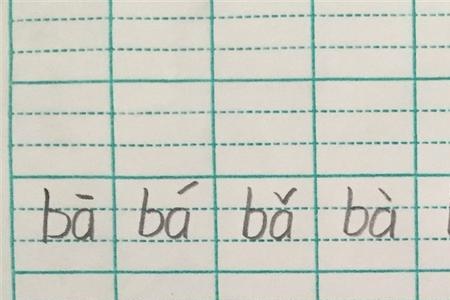 bā bá bǎ bà